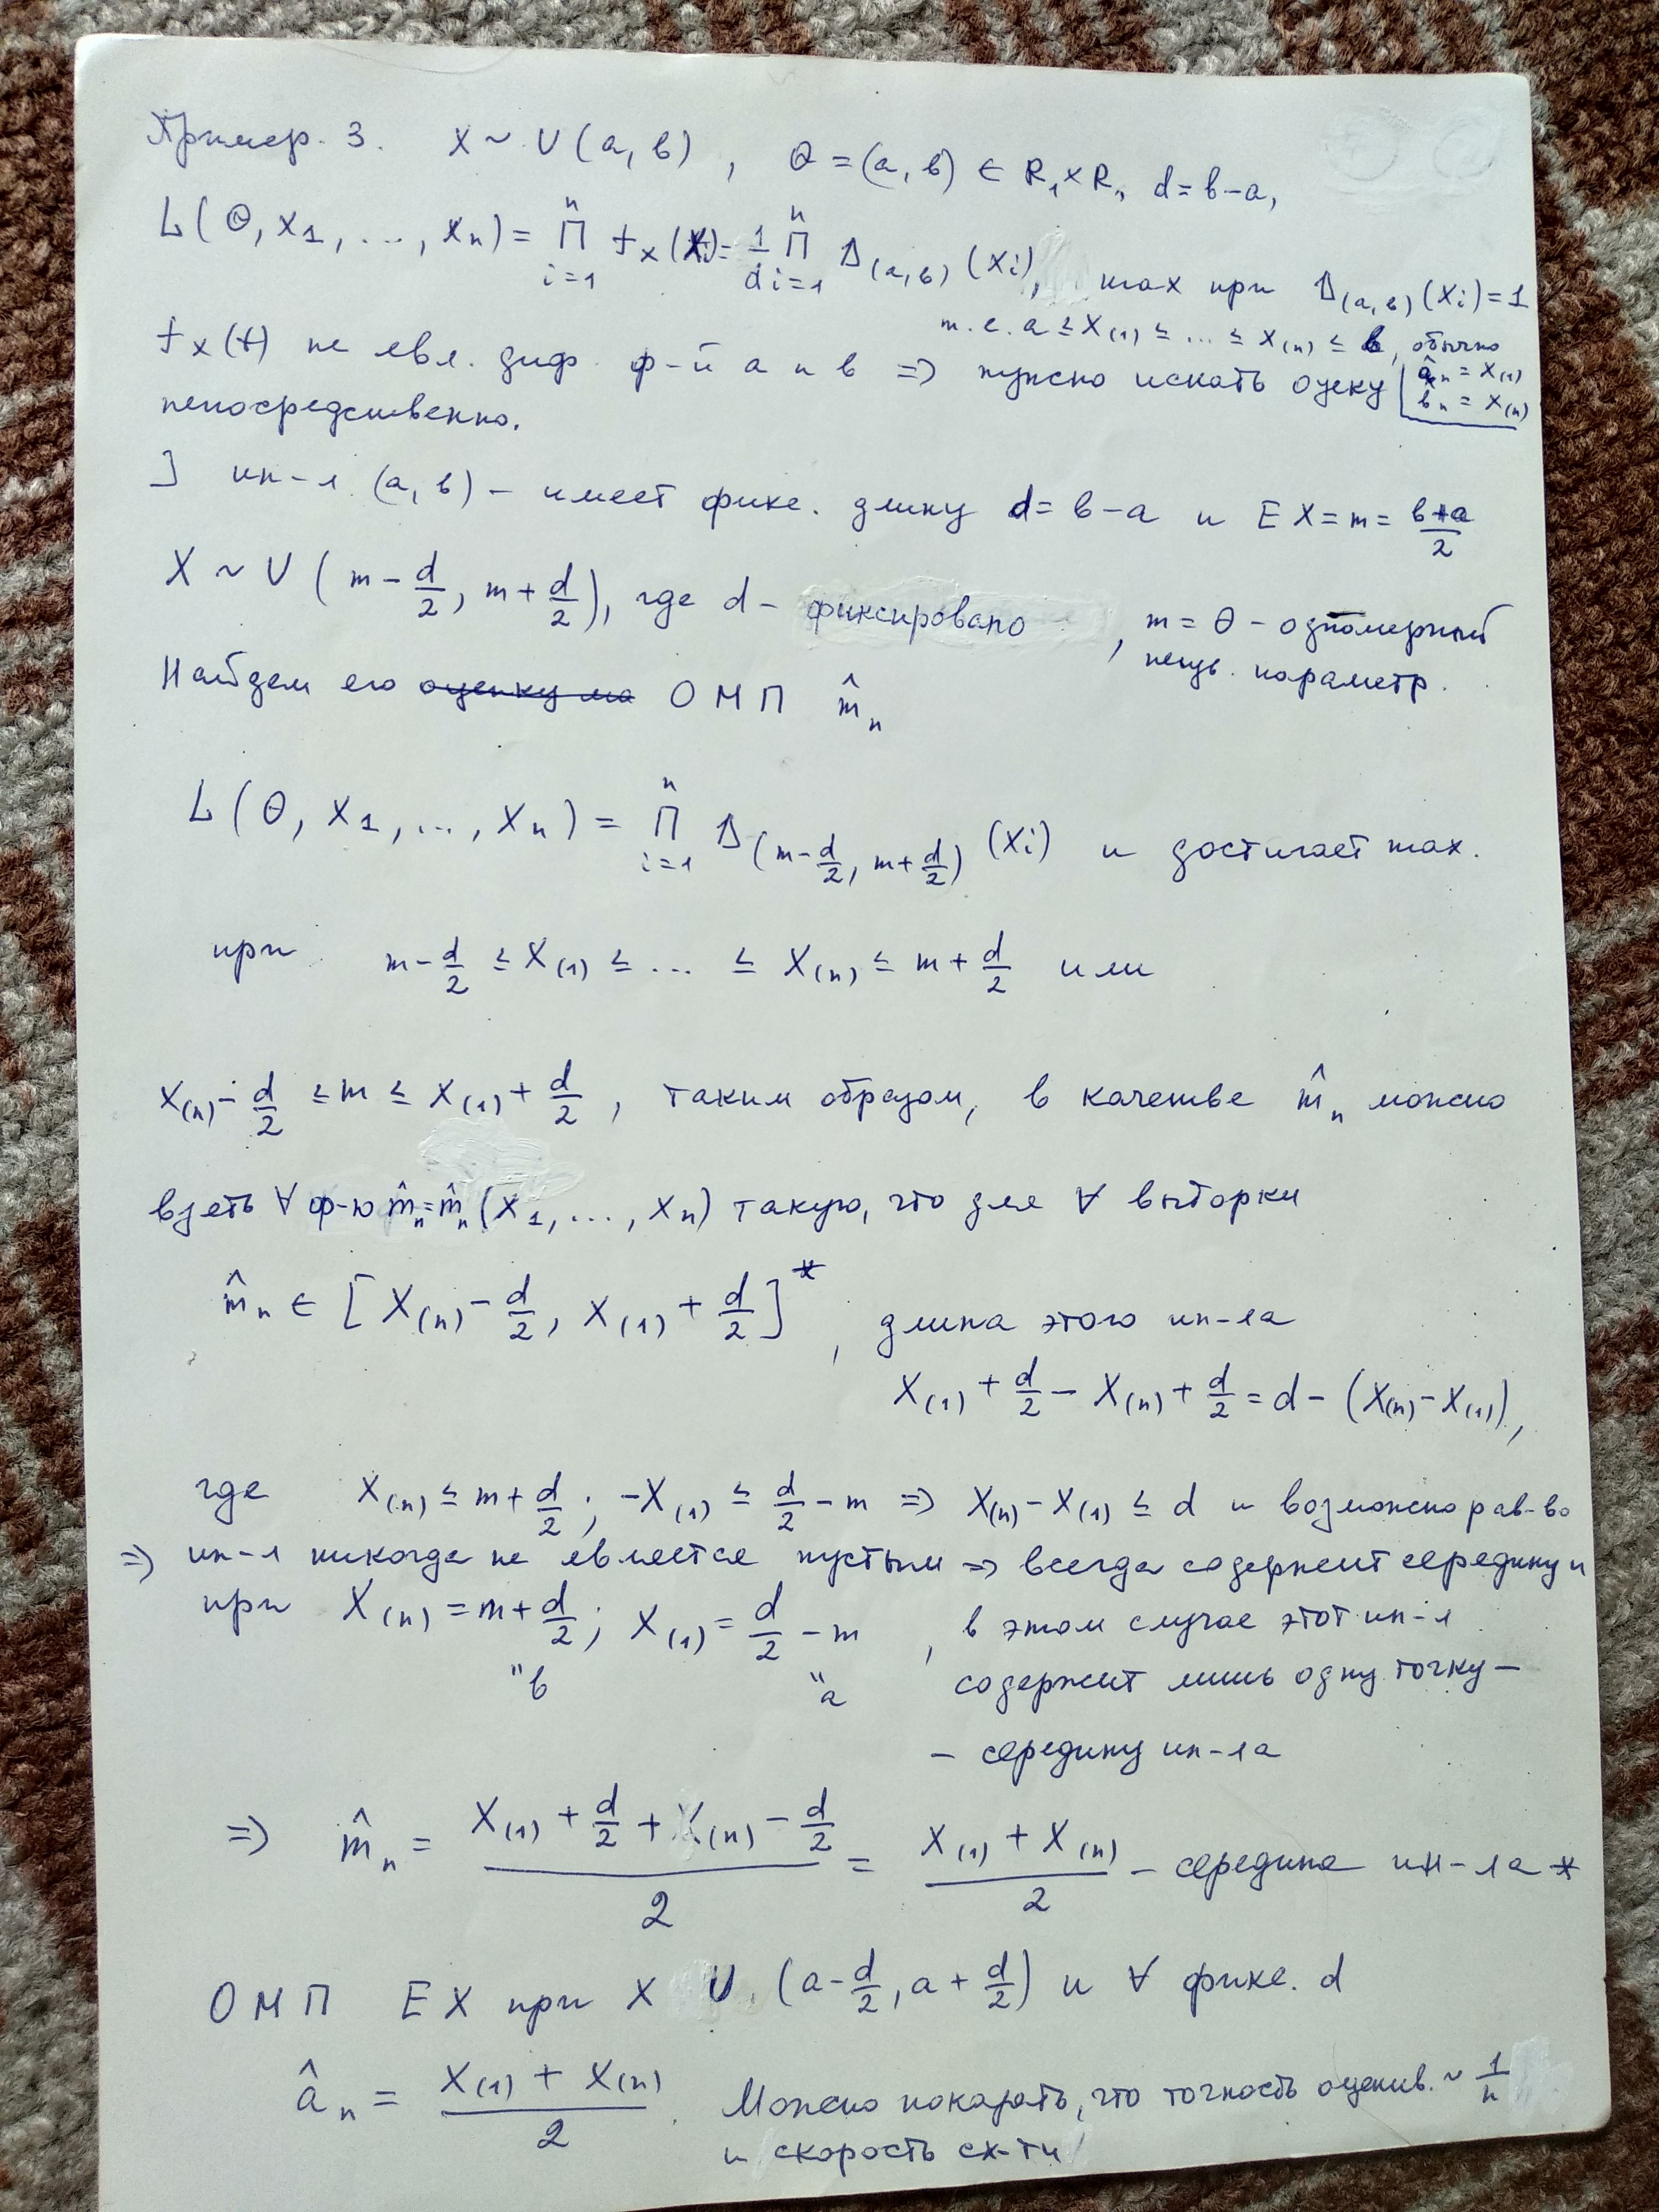 Пример. 3. X ~ U(a, b), θ = (a, b) ∈ R₁×R₁, d = b−a,
L(θ, x₁, ..., xₙ) = ∏ᵢ₌₁ⁿ fₓ(xᵢ) = 1/d ∏ᵢ₌₁ⁿ 1₍a,b₎(xᵢ), max при 1₍a,b₎(xᵢ) = 1
т.е. a ≤ x₍₁₎ ≤ ... ≤ x₍ₙ₎ ≤ b, обычно
fₓ(t) не явл. диф. ф-й a и b ⇒ нужно искать оценку âₙ = x₍₁₎
непосредственно. b̂ₙ = x₍ₙ₎
] ин-л (a, b) – имеет фикс. длину d = b−a и EX = m = (b+a)/2
X ~ U(m − d/2, m + d/2), где d – фиксировано, m = θ – одномерный
неизв. параметр.
Найдем его ОМП m̂ₙ
L(θ, x₁, ..., xₙ) = ∏ᵢ₌₁ⁿ 1₍m−d/2, m+d/2₎(xᵢ) и достигает max.
при m − d/2 ≤ x₍₁₎ ≤ ... ≤ x₍ₙ₎ ≤ m + d/2 или
x₍ₙ₎ − d/2 ≤ m ≤ x₍₁₎ + d/2, таким образом, в качестве m̂ₙ можно
взять ∀ ф-ю m̂ₙ = m̂ₙ(x₁, ..., xₙ) такую, что для ∀ выборки
m̂ₙ ∈ [x₍ₙ₎ − d/2, x₍₁₎ + d/2]*, длина этого ин-ла
x₍₁₎ + d/2 − x₍ₙ₎ + d/2 = d − (x₍ₙ₎ − x₍₁₎),
где x₍ₙ₎ ≤ m + d/2; −x₍₁₎ ≤ d/2 − m ⇒ x₍ₙ₎ − x₍₁₎ ≤ d и возможно рав-во
⇒ ин-л никогда не является пустым ⇒ всегда содержит середину и
при x₍ₙ₎ = m + d/2; x₍₁₎ = d/2 − m, в этом случае этот ин-л
"b "a содержит лишь одну точку –
– середину ин-ла
⇒ m̂ₙ = (x₍₁₎ + d/2 + x₍ₙ₎ − d/2)/2 = (x₍₁₎ + x₍ₙ₎)/2 – середина ин-ла *
ОМП EX при X U (a − d/2, a + d/2) и ∀ фикс. d
âₙ = (x₍₁₎ + x₍ₙ₎)/2. Можно показать, что точность оценив. ~ 1/n
и скорость сх-ти